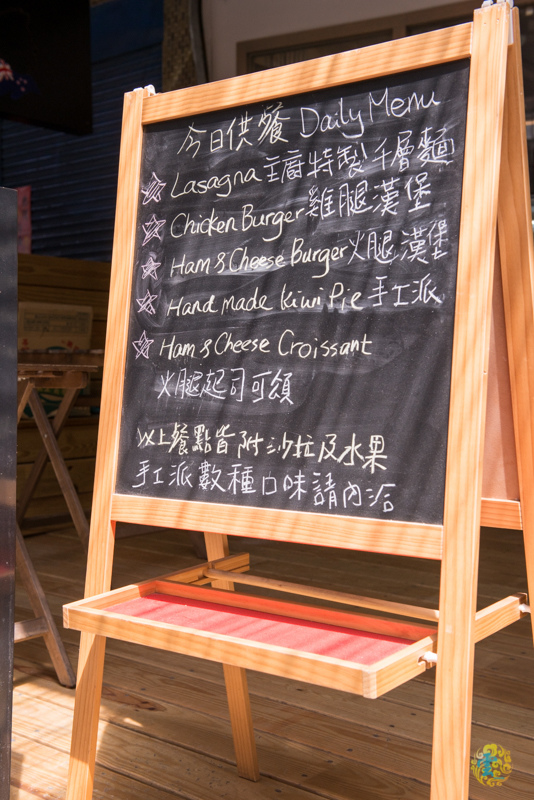 今日供餐 Daily Menu
☆ Lasagna 主廚特製千層麵
☆ Chicken Burger 雞腿漢堡
☆ Ham & Cheese Burger 火腿漢堡
☆ Hand made kiwi Pie 手工派
☆ Ham & Cheese Croissant
火腿起司可頌
以上餐點皆附沙拉及水果
手工派數種口味請內洽